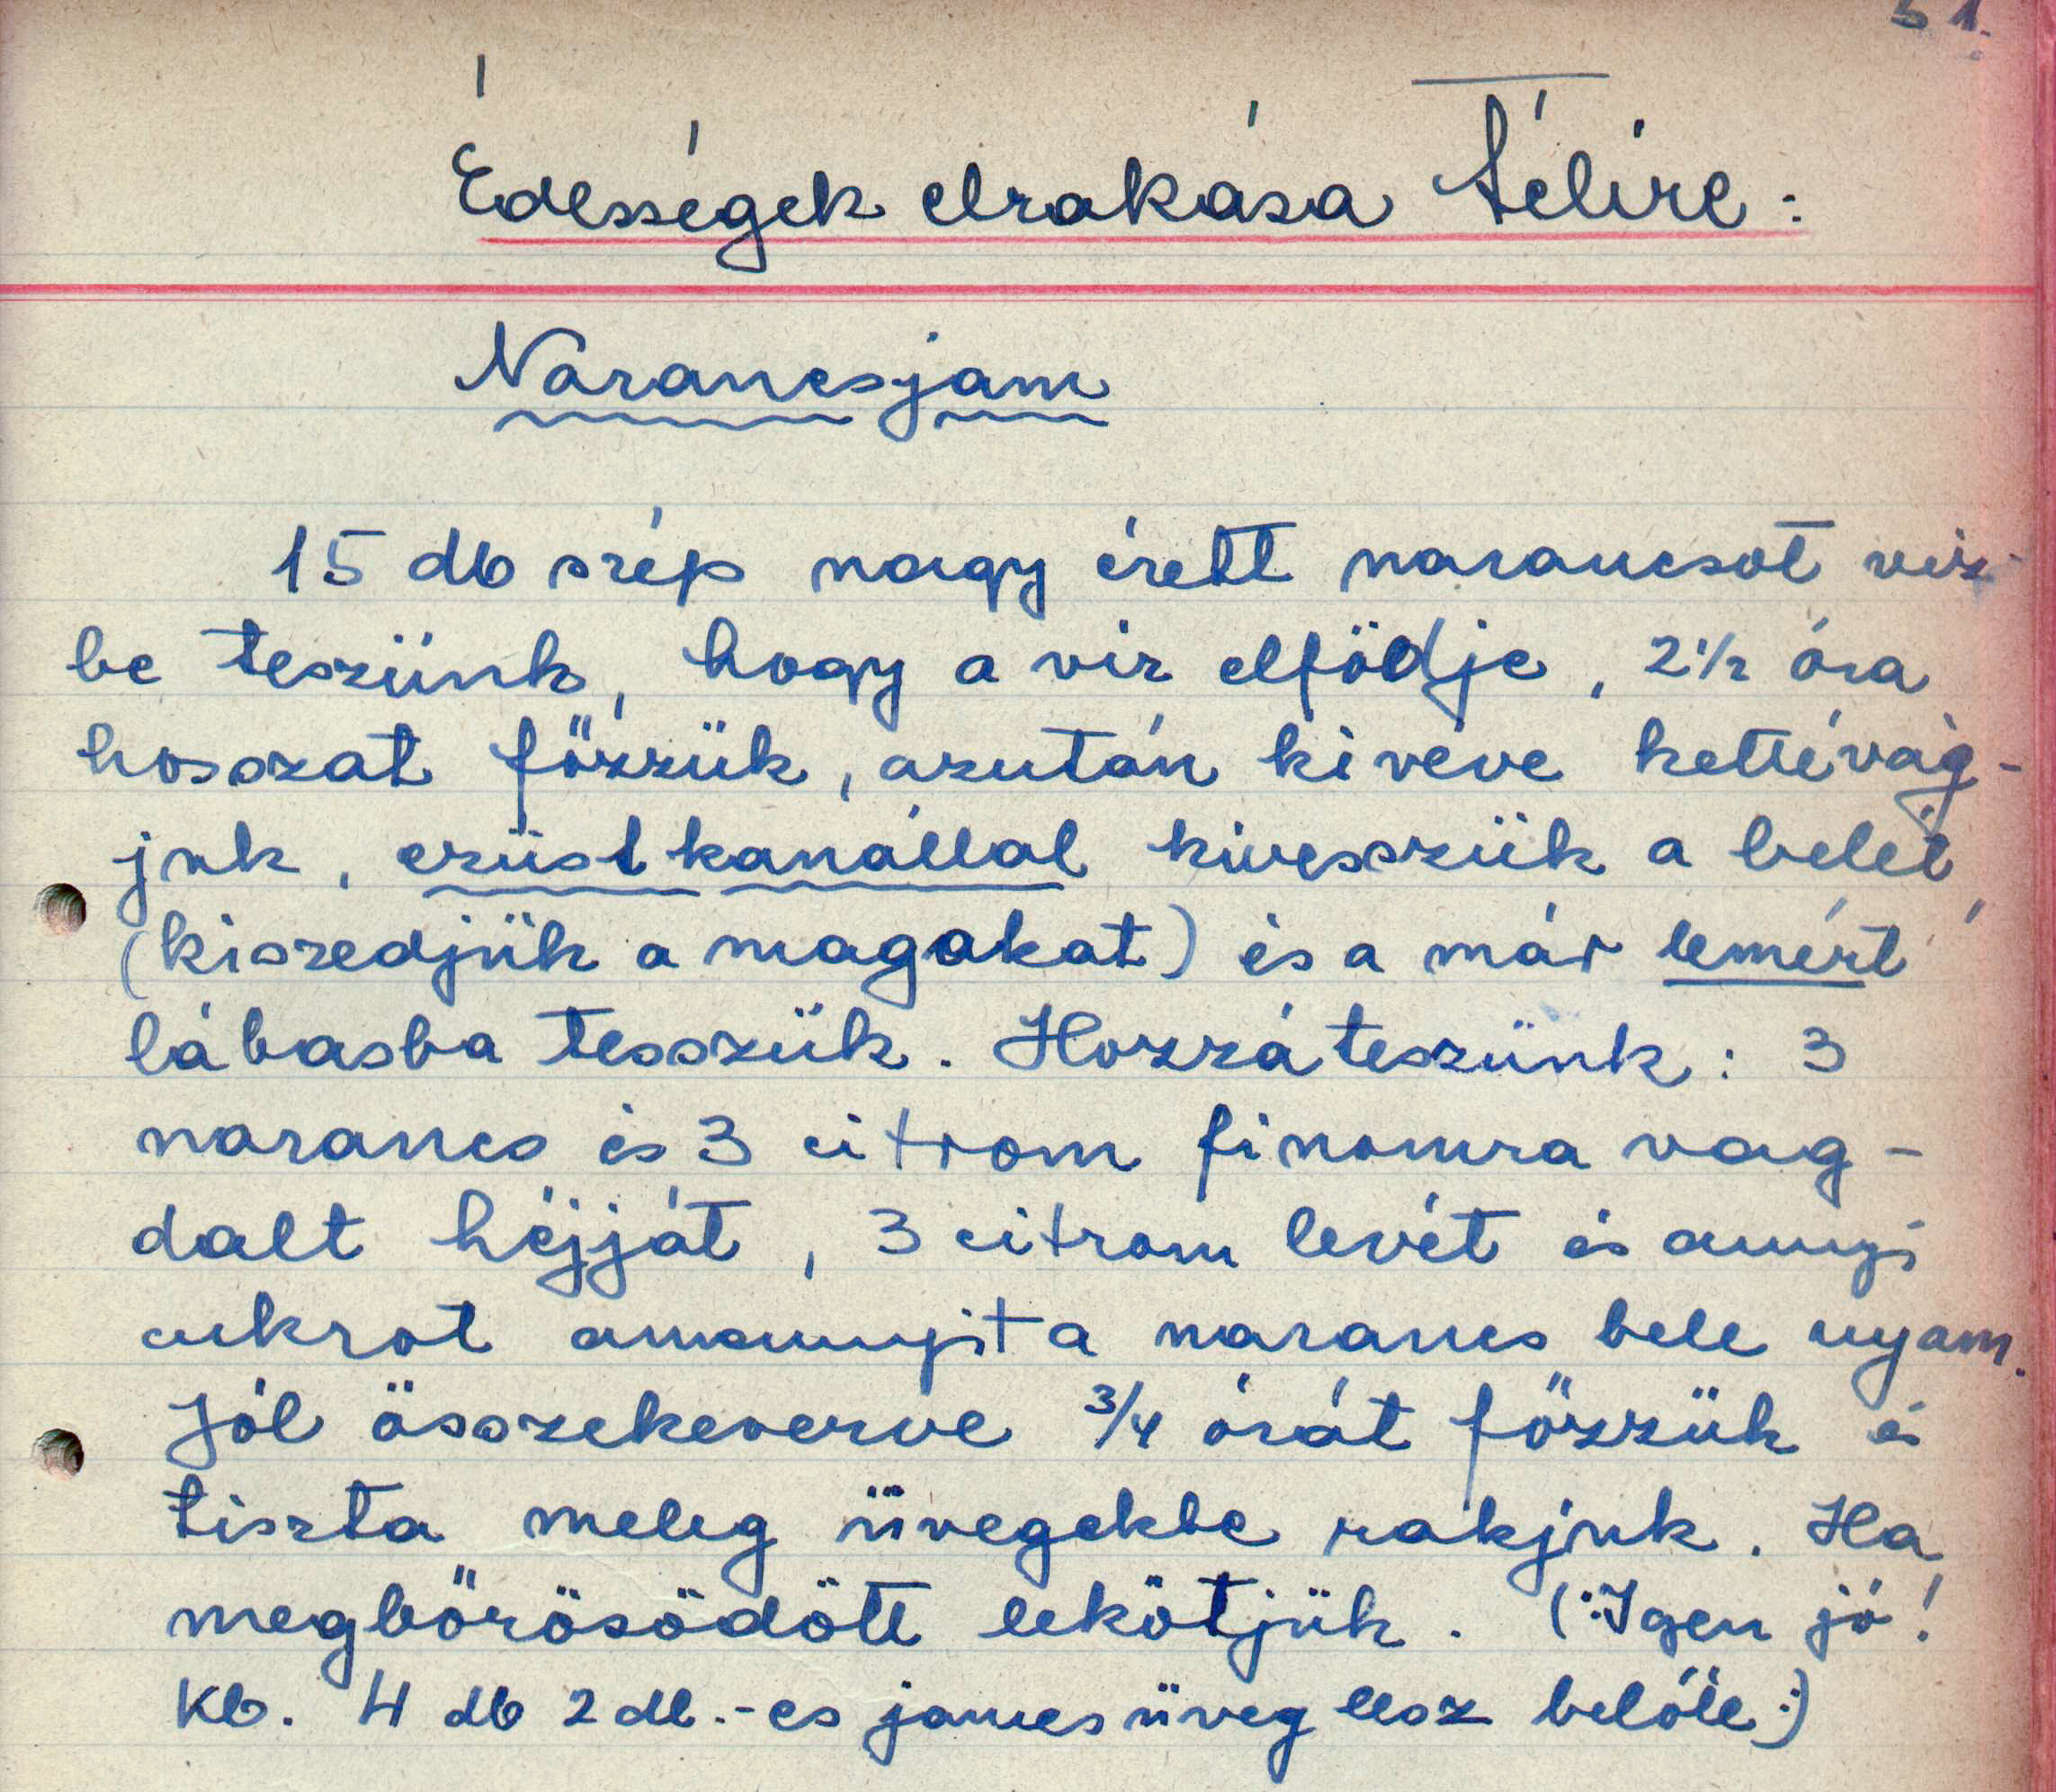 51.
Édességek elrakása télire:
Narancsjam
15 db szép nagy érett narancsot viz-
be teszünk, hogy a viz elfödje, 2 1/2 óra
hosszat főzzük, azután kivéve kettévág-
juk, ezüst kanállal kivesszük a belét,
(kiszedjük a magokat) és a már lemért
lábasba tesszük. Hozzáteszünk: 3
narancs és 3 citrom finomra vag-
dalt héjját, 3 citrom levét és annyi
cukrot amennyit a narancs bele nyom.
Jól összekeverve 3/4 órát főzzük és
tiszta meleg üvegekbe rakjuk. Ha
megbőrösödött lekötjük. (:Igen jó!
Kb. 4 db 2 dl.-es jamesüveg lesz belőle:)